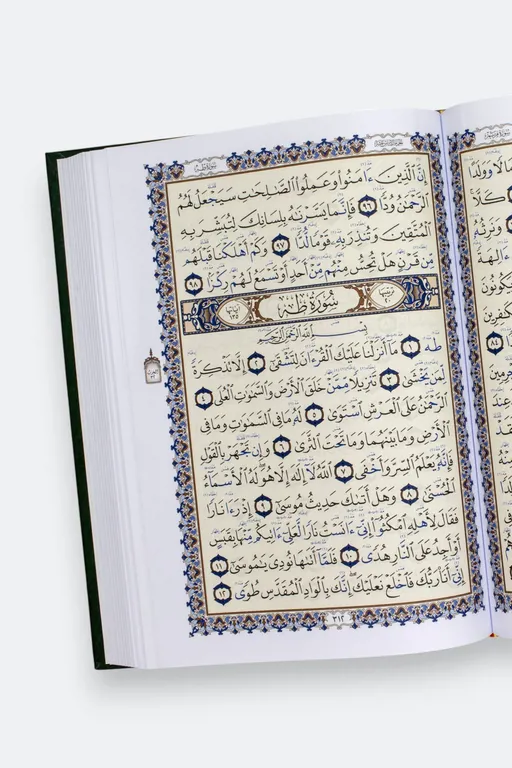 سورة طه
إِنَّ الَّذِينَ ءَامَنُوا وَعَمِلُوا الصَّـٰلِحَـٰتِ سَيَجْعَلُ لَهُمُ
الرَّحْمَـٰنُ وُدًّا ٩٦ فَإِنَّمَا يَسَّرْنَـٰهُ بِلِسَانِكَ لِتُبَشِّرَ بِهِ
الْمُتَّقِينَ وَتُنذِرَ بِهِۦ قَوْمًا لُّدًّا ٩٧ وَكَمْ أَهْلَكْنَا قَبْلَهُم
مِّن قَرْنٍ هَلْ تُحِسُّ مِنْهُم مِّنْ أَحَدٍ أَوْ تَسْمَعُ لَهُمْ رِكْزًا ٩٨
سُورَةُ طه
بِسْمِ اللَّهِ الرَّحْمَـٰنِ الرَّحِيمِ
طه ١ مَا أَنزَلْنَا عَلَيْكَ الْقُرْءَانَ لِتَشْقَىٰ ٢ إِلَّا تَذْكِرَةً
لِّمَن يَخْشَىٰ ٣ تَنزِيلًا مِّمَّنْ خَلَقَ الْأَرْضَ وَالسَّمَـٰوَٰتِ الْعُلَى ٤
الرَّحْمَـٰنُ عَلَى الْعَرْشِ اسْتَوَىٰ ٥ لَهُ مَا فِي السَّمَـٰوَٰتِ وَمَا فِي
الْأَرْضِ وَمَا بَيْنَهُمَا وَمَا تَحْتَ الثَّرَىٰ ٦ وَإِن تَجْهَرْ بِالْقَوْلِ
فَإِنَّهُ يَعْلَمُ السِّرَّ وَأَخْفَى ٧ اللَّهُ لَا إِلَـٰهَ إِلَّا هُوَ لَهُ الْأَسْمَاءُ
الْحُسْنَىٰ ٨ وَهَلْ أَتَىٰكَ حَدِيثُ مُوسَىٰ ٩ إِذْ رَءَا نَارًا
فَقَالَ لِأَهْلِهِ امْكُثُوا إِنِّي ءَانَسْتُ نَارًا لَّعَلِّي ءَاتِيكُم مِّنْهَا بِقَبَسٍ
أَوْ أَجِدُ عَلَى النَّارِ هُدًى ١٠ فَلَمَّا أَتَىٰهَا نُودِيَ يَـٰمُوسَىٰ ١١
إِنِّي أَنَا رَبُّكَ فَاخْلَعْ نَعْلَيْكَ إِنَّكَ بِالْوَادِ الْمُقَدَّسِ طُوًى ١٢
٣١٢